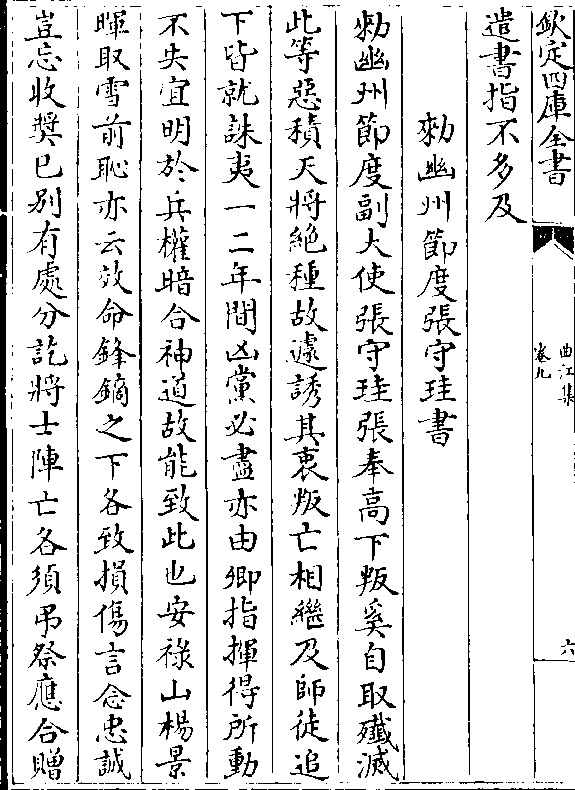 欽定四庫全書
曲江集
卷九
六
遣書指不多及
勑幽州節度張守珪書
勑幽州節度副大使張守珪張奉高下叛奚自取殲滅
此等惡積天將絶種故遽誘其衷叛亡相繼及師徒追
下皆就誅夷一二年間凶黨必盡亦由卿指揮得所動
不失宜明於兵權暗合神道故能致此也安祿山楊景
暉取雪前恥亦云效命鋒鏑之下各致損傷言念忠誠
豈忘收奬已别有處分訖將士陣亡各須弔祭應合贈